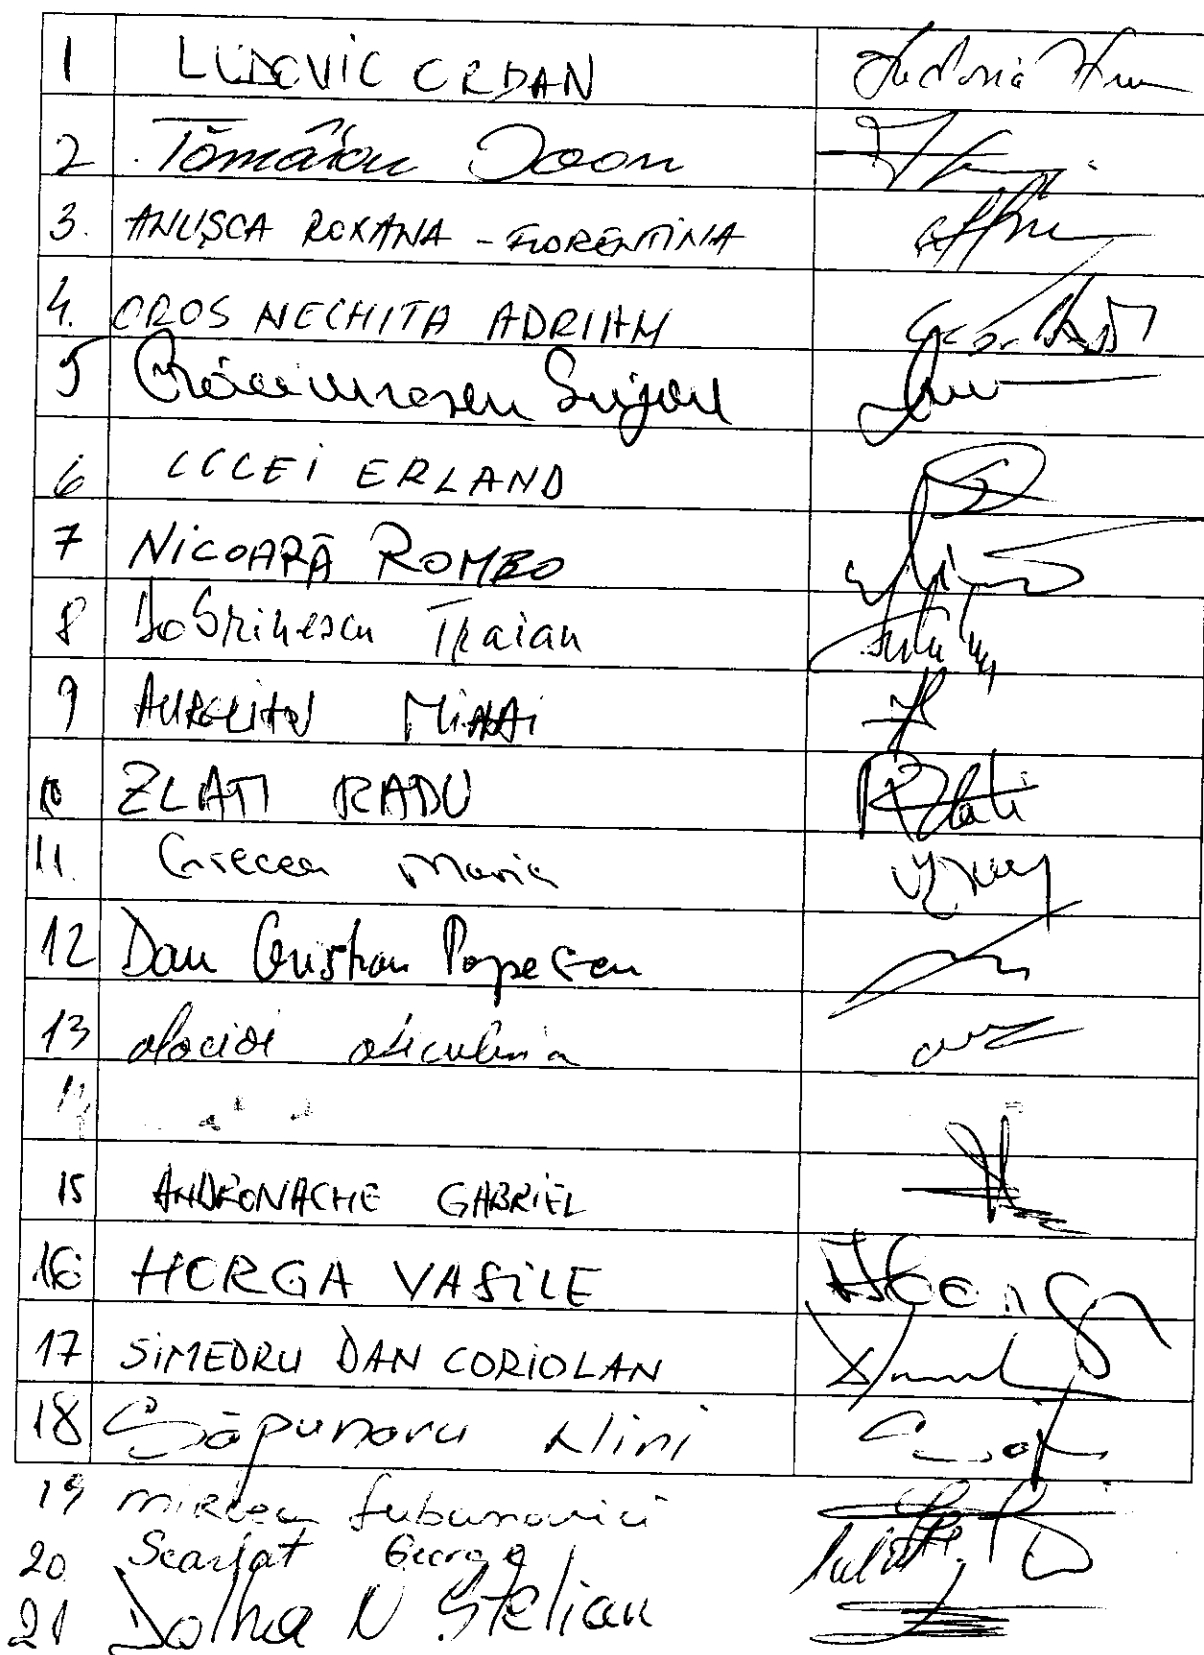 1 LUDOVIC ORBAN
2 Tămâian Ioan
3. ANUȘCA ROXANA - FLORENTINA
4. OROS NECHITA ADRIAN
5
6 LOLEI ERLAND
7 NICOARĂ ROMEO
8 Dobrinescu Traian
9 AURELIAN MIHAI
10 ZLATI RADU
11. Grecea Maria
12 Dan Cristian Popescu
13
14
15 ANDRONACHE GABRIEL
16 HORGA VASILE
17 SIMEDRU DAN CORIOLAN
18 Săpunaru Nini
19 Mircea Lubanovici
20 Scarlat George
21 Dolha N Stelian